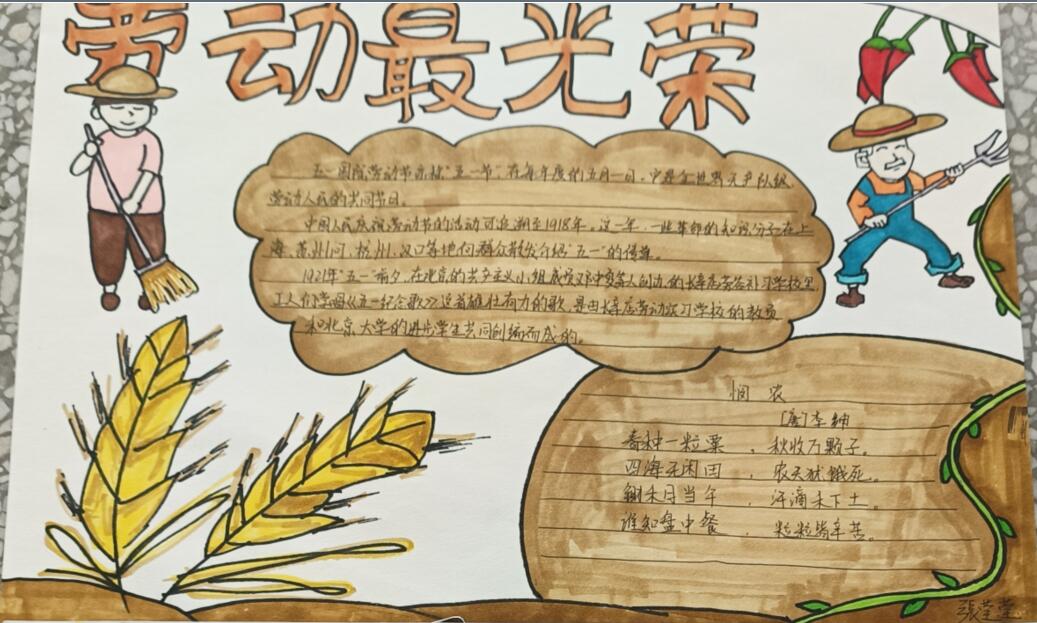 劳动最光荣
五一国际劳动节亦称"五一节",在每年度的五月一日,它是全世界无产队级
劳动人民的共同节日。
中国人民庆祝劳动节的活动可追溯至1918年。这一年,一些革命的知识分子在上
海、苏州、杭州、汉口等地向群众散发介绍"五一"的传单。
1921年"五一"前夕,在北京的共产主义小组成员邓中夏等人创办的长辛店劳动补习学校里
工人们学唱《五一纪念歌》这首雄壮有力的歌,是由长辛店劳动实习学校的教员
和北京大学的进步学生共同创编而成的。
悯 农
[唐]李绅
春种一粒粟,秋收万颗子。
四海无闲田,农夫犹饿死。
锄禾日当午,汗滴禾下土。
谁知盘中餐,粒粒皆辛苦。